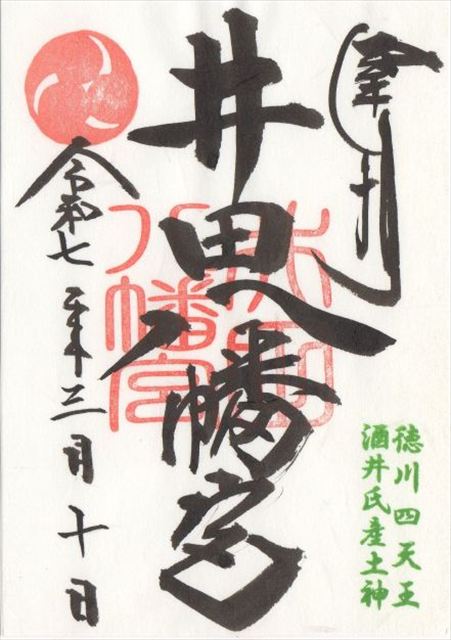 奉拝
井田八幡宮
令和七年三月十日
徳川四天王
酒井氏産土神